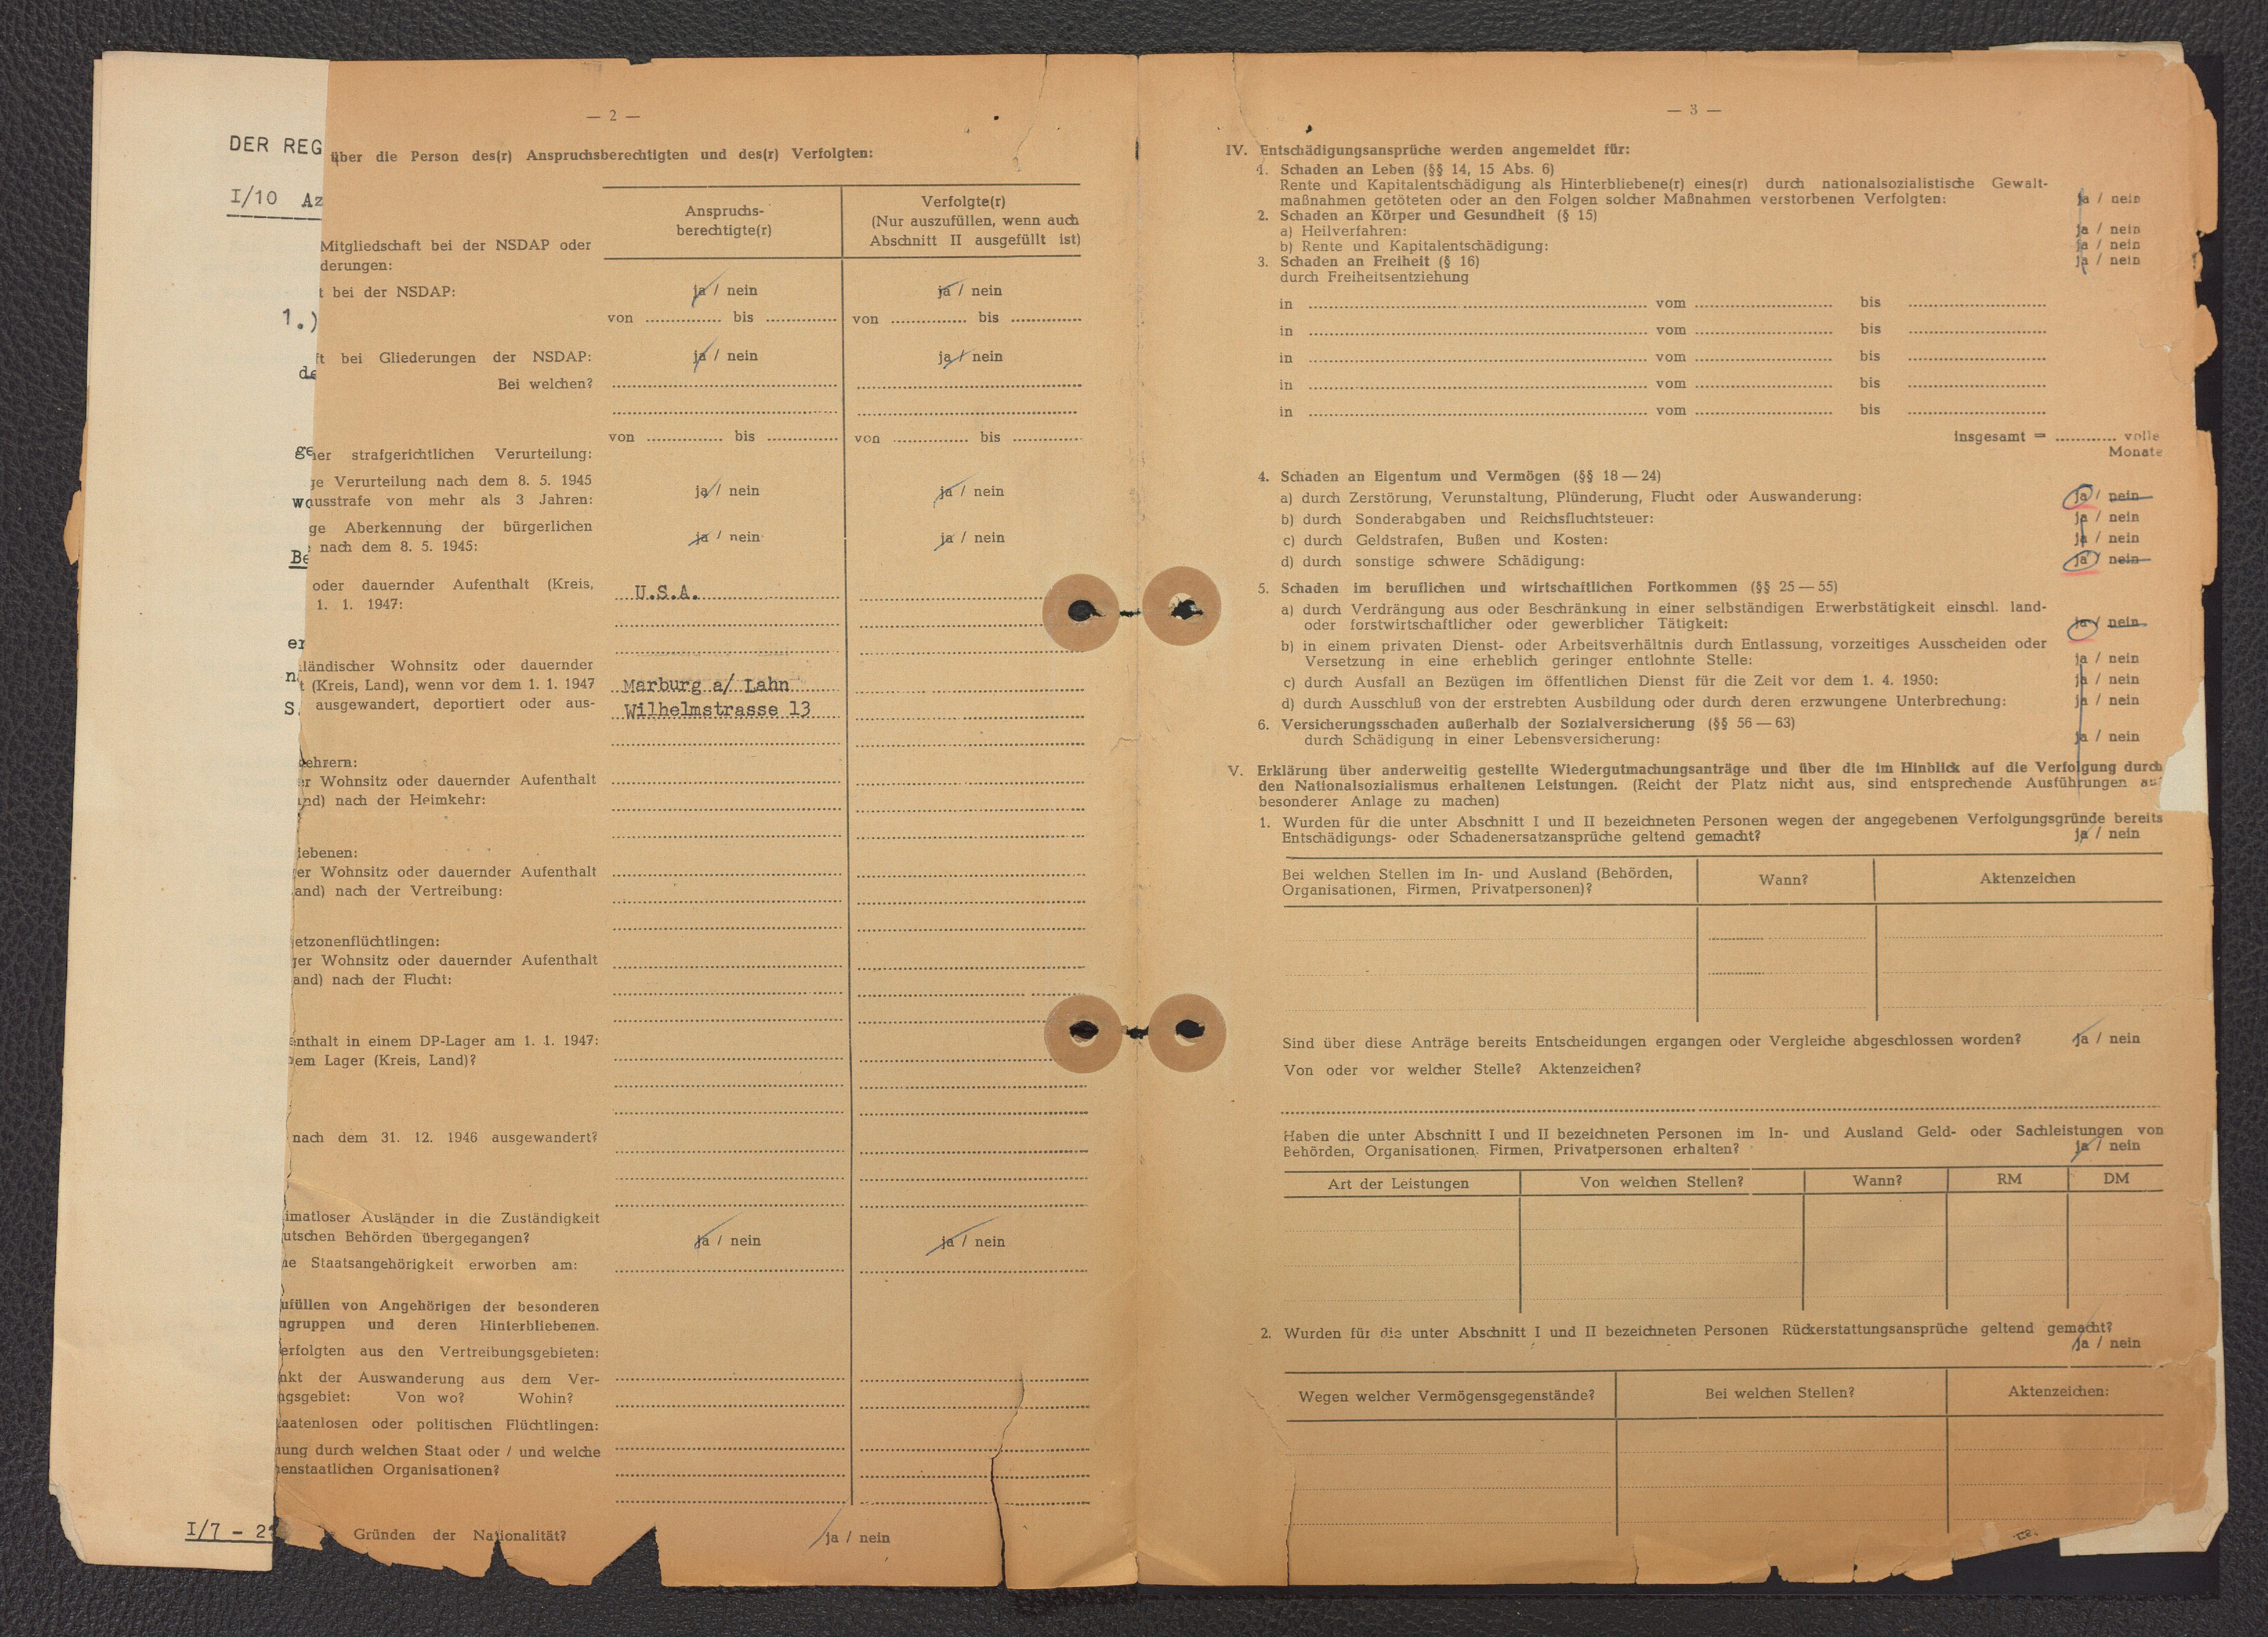 DER REG
I/10 Az
1.)
de
ge
wo
Be
er
n
S
I/7 - 2
— 2 —
über die Person des(r) Anspruchsberechtigten und des(r) Verfolgten:
Anspruchs-
berechtigte(r)
Verfolgte(r)
(Nur auszufüllen, wenn auch
Abschnitt II ausgefüllt ist)
Mitgliedschaft bei der NSDAP oder
derungen:
t bei der NSDAP: ja / nein ja / nein
von bis von bis
ft bei Gliederungen der NSDAP: ja / nein ja / nein
Bei welchen?
von bis von bis
ner strafgerichtlichen Verurteilung:
ge Verurteilung nach dem 8. 5. 1945
ausstrafe von mehr als 3 Jahren: ja / nein ja / nein
ge Aberkennung der bürgerlichen
nach dem 8. 5. 1945: ja / nein ja / nein
oder dauernder Aufenthalt (Kreis,
1. 1. 1947: U.S.A.
ländischer Wohnsitz oder dauernder
t (Kreis, Land), wenn vor dem 1. 1. 1947 Marburg a/ Lahn
ausgewandert, deportiert oder aus- Wilhelmstrasse 13
ehrern:
er Wohnsitz oder dauernder Aufenthalt
and) nach der Heimkehr:
iebenen:
er Wohnsitz oder dauernder Aufenthalt
and) nach der Vertreibung:
jetzonenflüchtlingen:
ger Wohnsitz oder dauernder Aufenthalt
and) nach der Flucht:
enthalt in einem DP-Lager am 1. 1. 1947:
em Lager (Kreis, Land)?
nach dem 31. 12. 1946 ausgewandert?
imatloser Ausländer in die Zuständigkeit
utschen Behörden übergegangen? ja / nein ja / nein
ne Staatsangehörigkeit erworben am:
ufüllen von Angehörigen der besonderen
ngruppen und deren Hinterbliebenen.
erfolgten aus den Vertreibungsgebieten:
nkt der Auswanderung aus dem Ver-
ngsgebiet: Von wo? Wohin?
taatenlosen oder politischen Flüchtlingen:
nung durch welchen Staat oder / und welche
enstaatlichen Organisationen?
Gründen der Nationalität? ja / nein
— 3 —
IV. Entschädigungsansprüche werden angemeldet für:
1. Schaden an Leben (§§ 14, 15 Abs. 6)
Rente und Kapitalentschädigung als Hinterbliebene(r) eines(r) durch nationalsozialistische Gewalt-
maßnahmen getöteten oder an den Folgen solcher Maßnahmen verstorbenen Verfolgten: ja / nein
2. Schaden an Körper und Gesundheit (§ 15)
a) Heilverfahren: ja / nein
b) Rente und Kapitalentschädigung: ja / nein
3. Schaden an Freiheit (§ 16) ja / nein
durch Freiheitsentziehung
in vom bis
in vom bis
in vom bis
in vom bis
in vom bis
insgesamt = volle
Monate
4. Schaden an Eigentum und Vermögen (§§ 18 — 24)
a) durch Zerstörung, Verunstaltung, Plünderung, Flucht oder Auswanderung: ja / nein
b) durch Sonderabgaben und Reichsfluchtsteuer: ja / nein
c) durch Geldstrafen, Bußen und Kosten: ja / nein
d) durch sonstige schwere Schädigung: ja / nein
5. Schaden im beruflichen und wirtschaftlichen Fortkommen (§§ 25 — 55)
a) durch Verdrängung aus oder Beschränkung in einer selbständigen Erwerbstätigkeit einschl. land-
oder forstwirtschaftlicher oder gewerblicher Tätigkeit: ja / nein
b) in einem privaten Dienst- oder Arbeitsverhältnis durch Entlassung, vorzeitiges Ausscheiden oder
Versetzung in eine erheblich geringer entlohnte Stelle: ja / nein
c) durch Ausfall an Bezügen im öffentlichen Dienst für die Zeit vor dem 1. 4. 1950: ja / nein
d) durch Ausschluß von der erstrebten Ausbildung oder durch deren erzwungene Unterbrechung: ja / nein
6. Versicherungsschaden außerhalb der Sozialversicherung (§§ 56 — 63)
durch Schädigung in einer Lebensversicherung: ja / nein
V. Erklärung über anderweitig gestellte Wiedergutmachungsanträge und über die im Hinblick auf die Verfolgung durch
den Nationalsozialismus erhaltenen Leistungen. (Reicht der Platz nicht aus, sind entsprechende Ausführungen au
besonderer Anlage zu machen)
1. Wurden für die unter Abschnitt I und II bezeichneten Personen wegen der angegebenen Verfolgungsgründe bereits
Entschädigungs- oder Schadenersatzansprüche geltend gemacht? ja / nein
Bei welchen Stellen im In- und Ausland (Behörden,
Organisationen, Firmen, Privatpersonen)?
Wann?
Aktenzeichen
Sind über diese Anträge bereits Entscheidungen ergangen oder Vergleiche abgeschlossen worden? ja / nein
Von oder vor welcher Stelle? Aktenzeichen?
Haben die unter Abschnitt I und II bezeichneten Personen im In- und Ausland Geld- oder Sachleistungen von
Behörden, Organisationen, Firmen, Privatpersonen erhalten? ja / nein
Art der Leistungen Von welchen Stellen? Wann? RM DM
2. Wurden für die unter Abschnitt I und II bezeichneten Personen Rückerstattungsansprüche geltend gemacht?
ja / nein
Wegen welcher Vermögensgegenstände? Bei welchen Stellen? Aktenzeichen: